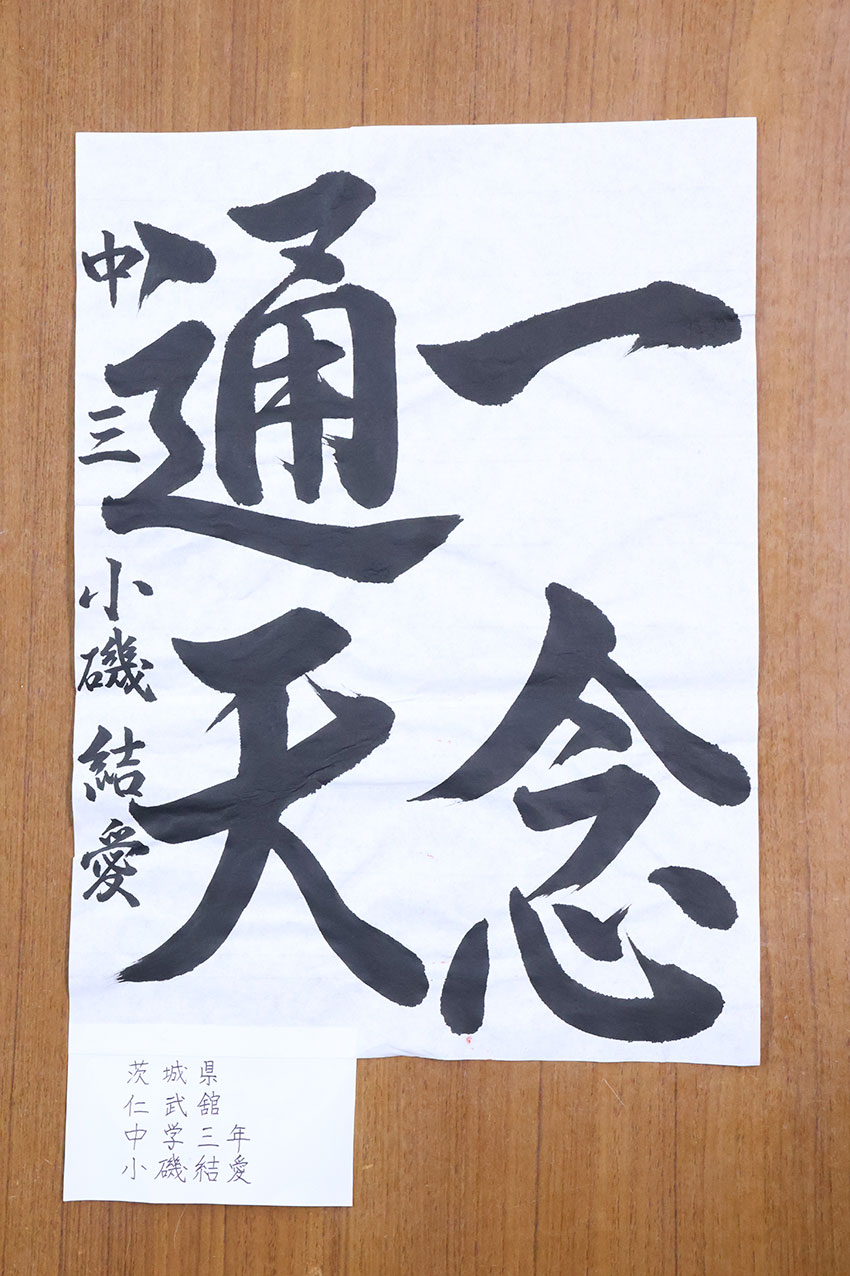 一念
通天
中三 小磯結愛
茨城県
仁武舘
中学三年
小磯結愛